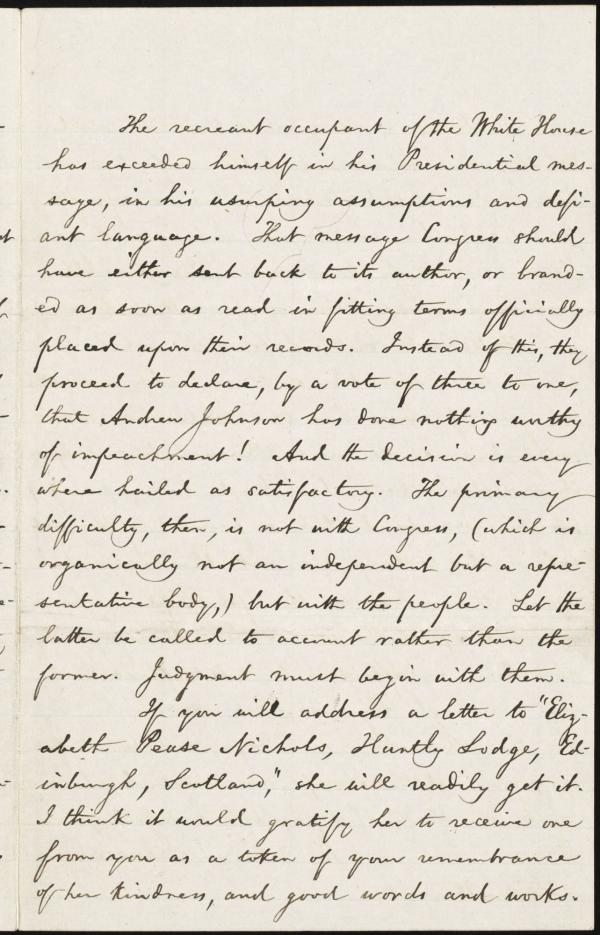 The recreant occupant of the White House
has exceeded himself in his Presidential mes-
sage, in his usurping assumptions and defi-
ant language. That message Congress should
have either sent back to its author, or brand-
ed as soon as read in fitting terms officially
placed upon their records. Instead of this, they
proceed to declare, by a vote of three to one,
that Andrew Johnson has done nothing worthy
of impeachment! And the decision is every
where hailed as satisfactory. The primary
difficulty, then, is not with Congress, (which is
organically not an independent but a repre-
sentative body,) but with the people. Let the
latter be called to account rather than the
former. Judgment must begin with them.
If you will address a letter to "Eliz-
abeth Pease Nichols, Huntly Lodge, Ed-
inburgh, Scotland," she will readily get it.
I think it would gratify her to receive one
from you as a token of your remembrance
of her kindness, and good words and works.